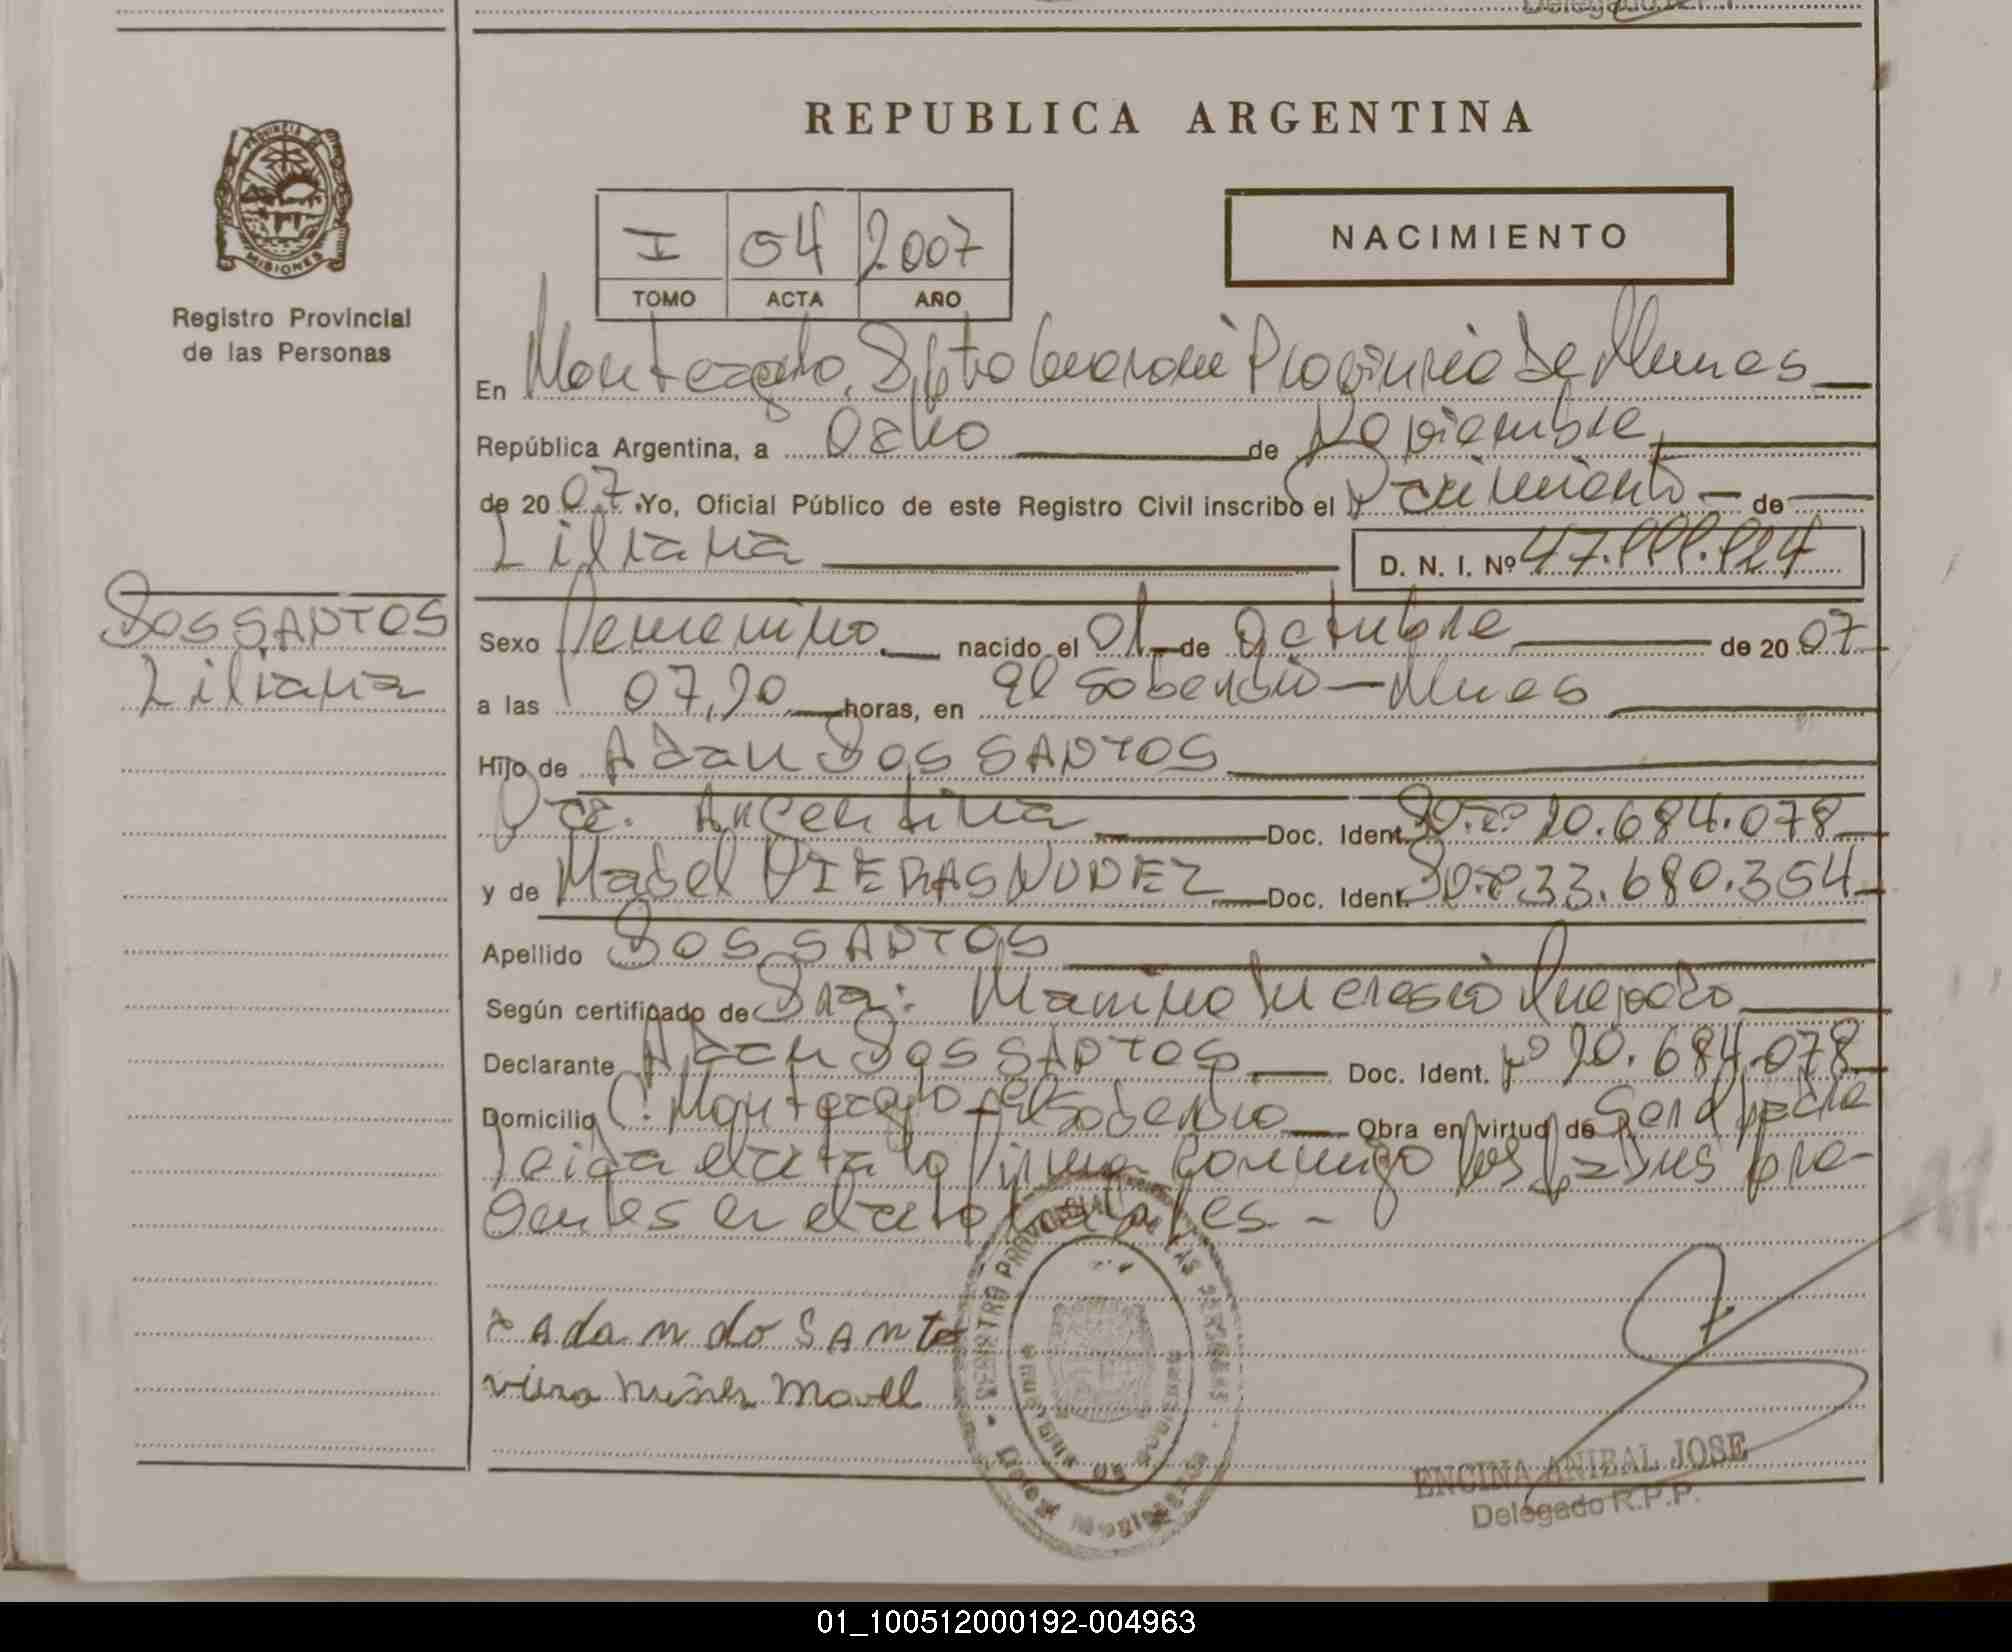 REPUBLICA ARGENTINA
PROVINCIA DE
MISIONES
Registro Provincial
de las Personas
I 04 2007
TOMO ACTA AÑO
NACIMIENTO
En Provincia de
República Argentina, a Ocho de Noviembre
de 2007. Yo, Oficial Público de este Registro Civil inscribo el Nacimiento de
Liliana D. N. I. Nº 47.
DOS SANTOS
Liliana
Sexo Femenino nacido el 01 de Octubre de 2007
a las 07,20 horas, en El Soberbio - Mnes
Hijo de Adan DOS SANTOS
Argentina Doc. Ident. 20.684.078
y de Mabel VIERAS NUÑEZ Doc. Ident. 33.680.354
Apellido DOS SANTOS
Según certificado de Sra:
Declarante Adan DOS SANTOS Doc. Ident. Nº 20.684.078
Domicilio El Soberbio Obra en virtud de Ser el padre
Leida el acta la firma conmigo los padres pre-
sentes en el acto
Adan do SAnto
viera nuñez Mavel
REGISTRO PROVINCIAL DE LAS PERSONAS
ENCINA ANIBAL JOSE
Delegado R.P.P.
01_100512000192-004963